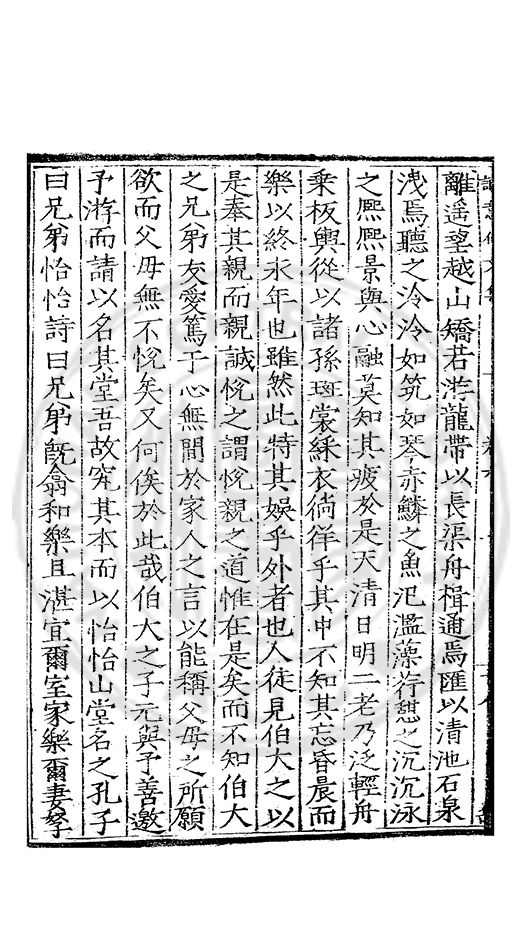 離遥望越山矯若游龍帶以長渠舟楫通焉匯以清池石泉
洩焉聽之泠泠如筑如琴赤鱗之魚汜濫藻荇憇之沉沉泳
之熈熈景與心融莫知其疲於是天清日明二老乃泛輕舟
乗板輿從以諸孫斑裳綵衣徜徉乎其中不知其忘昏晨而
樂以終永年也雖然此特其娱乎外者也人徒見伯大之以
是奉其親而親誠悅之謂悅親之道惟在是矣而不知伯大
之兄弟友愛篤于心無間於家人之言以能稱父母之所願
欲而父母無不悅矣又何俟於此哉伯大之子元與予善邀
予游而請以名其堂吾故究其本而以怡怡山堂名之孔子
曰兄弟怡怡詩曰兄弟旣翕和樂且湛宜爾室家樂爾妻孥